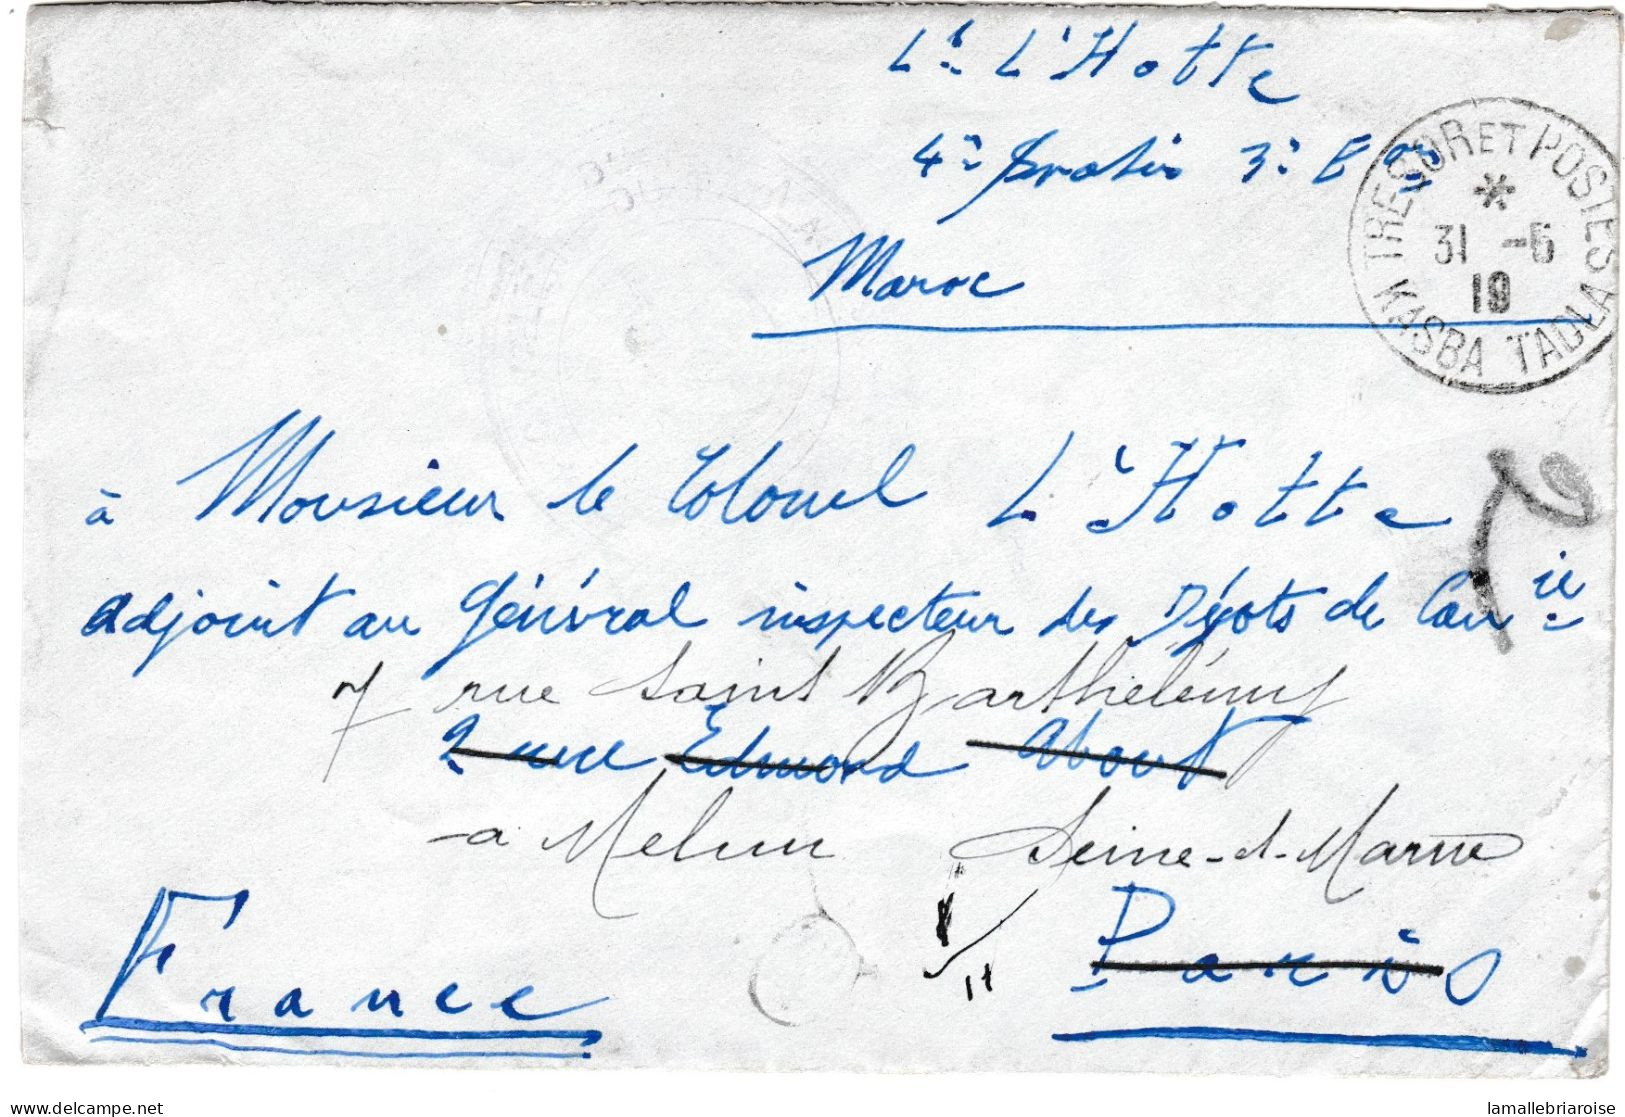 Lt L'Hotte
4e 3e
Maroc
TRESOR ET POSTES
*
31 -5
19
KASBA TADLA
à Monsieur le Colonel L'Hotte
adjoint au Général inspecteur des Dépots de Cavie
7 rue Saint Barthélémy
2 rue Edmond About
a Melun Seine-et-Marne
France
Paris
delcampe.net
lamallebriaroise